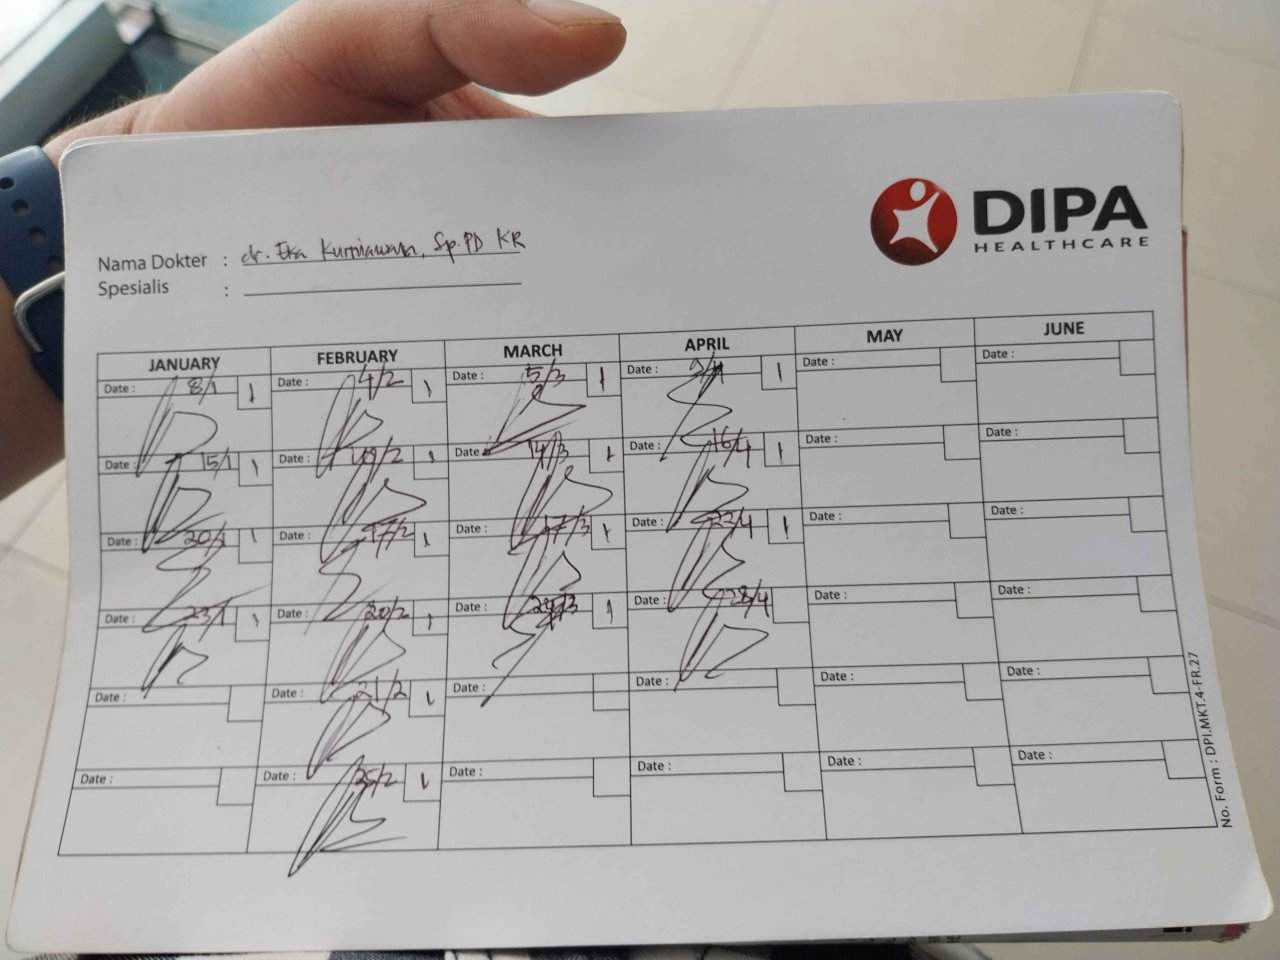 DIPA
HEALTHCARE
Nama Dokter : dr. Eka Kurniawan, Sp.PD KR
Spesialis :
JANUARY FEBRUARY MARCH APRIL MAY JUNE
Date : 8/1 1 Date : 4/2 1 Date : 5/3 1 Date : 1 Date : Date :
Date : 15/1 1 Date : 1 Date : 14/3 1 Date : 16/4 1 Date : Date :
Date : 20/1 1 Date : 17/2 1 Date : 17/3 1 Date : 22/4 1 Date : Date :
Date : 23/1 1 Date : 20/2 1 Date : 1 Date : 28/4 Date : Date :
Date : Date : 21/2 1 Date : Date : Date : Date :
Date : Date : 25/2 1 Date : Date : Date : Date :
No. Form : DPI.MKT.4-FR.27